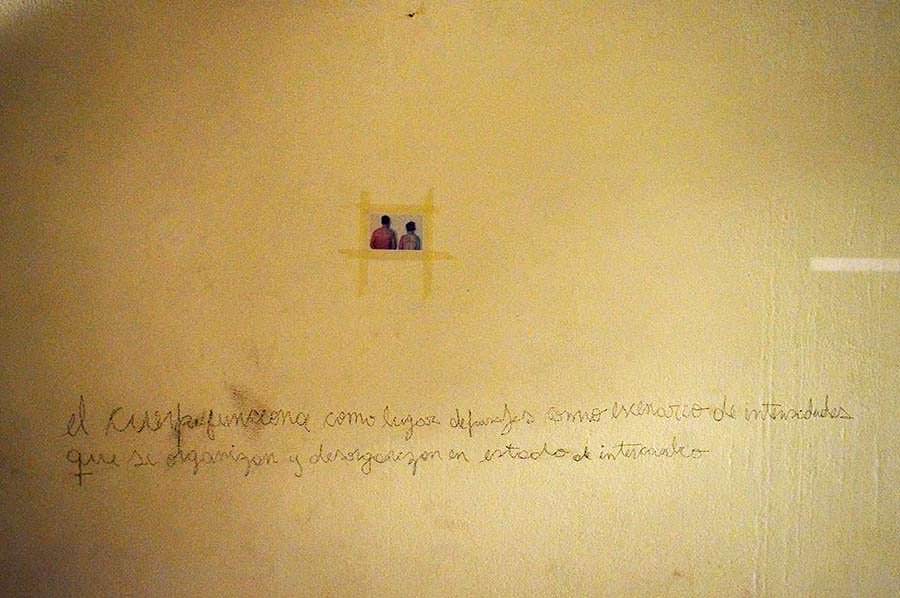 el cuerpo funciona como lugar de pasajes como escenario de intensidades
que se organizan y desorganizan en estado de intercambio